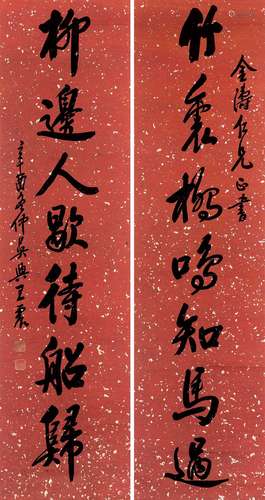 金濤仁兄正書
竹裏櫓鳴知馬過
柳邊人歇待船歸
辛酉 仲吳興王震